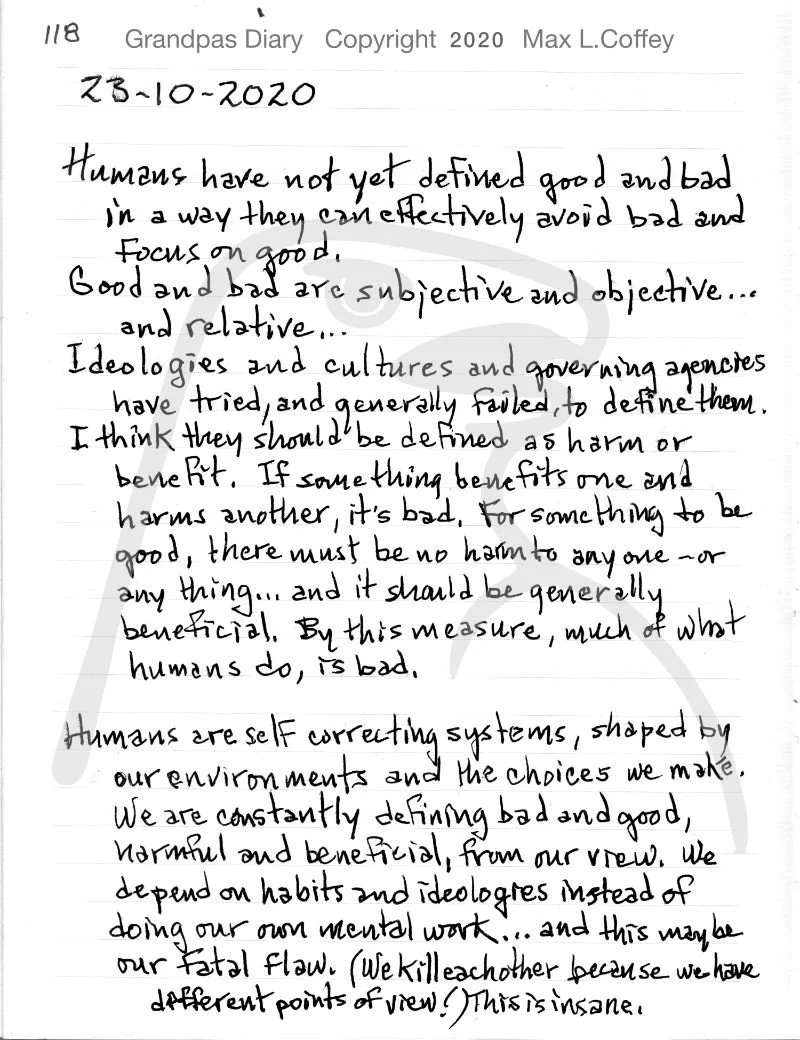 118 Grandpas Diary Copyright 2020 Max L.Coffey
23-10-2020
Humans have not yet defined good and bad
in a way they can effectively avoid bad and
focus on good.
Good and bad are subjective and objective...
and relative...
Ideologies and cultures and governing agencies
have tried, and generally failed, to define them.
I think they should be defined as harm or
benefit. If something benefits one and
harms another, it's bad. For something to be
good, there must be no harm to any one - or
any thing... and it should be generally
beneficial. By this measure, much of what
humans do, is bad.
Humans are self correcting systems, shaped by
our environments and the choices we make.
We are constantly defining bad and good,
harmful and beneficial, from our view. We
depend on habits and ideologies instead of
doing our own mental work... and this may be
our fatal flaw. (We kill each other because we have
different points of view!) This is insane.